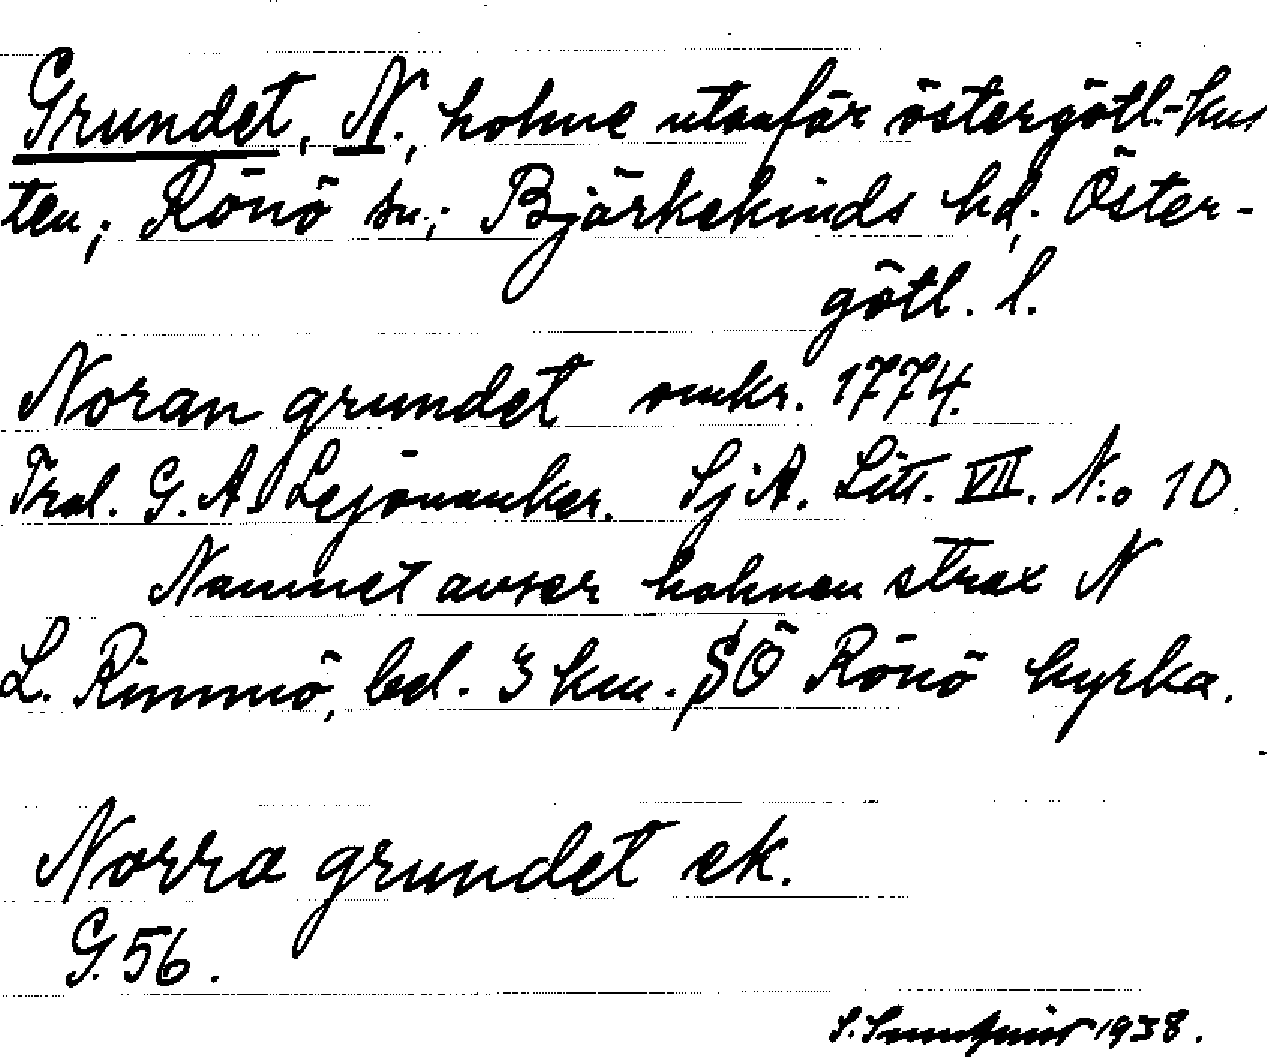 Grundet, N., holme utanför östergötl.-kus
ten; Rönö sn.; Björkekinds hd, Öster-
götl. l.
Noran grundet omkr. 1774.
Tral. G. A. Lejonanker. SjA. Litt. VII. N:o 10.
Namnet avser holmen strax N
L. Rimmö, bel. 3 km. SÖ Rönö kyrka.
Norra grundet ek.
G. 56.
S. 1938.